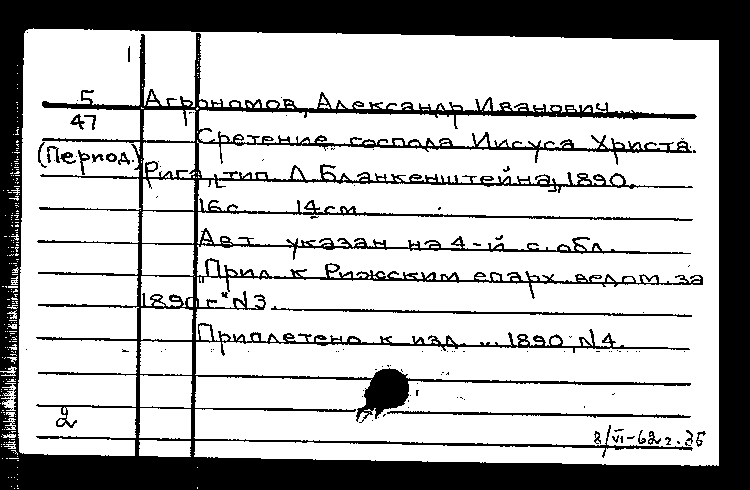 1
5 Агрономов, Александр Иванович
47
Сретение господа Иисуса Христа.
(Период.) Рига, тип. Л. Бланкенштейна, 1890.
16 с. 14 см.
Авт. указан на 4-й с. обл.
"Прил. к Рижским епарх. ведом. за
1890 г." N3.
Приплетено к изд. ... 1890, N4.
2
8/VI-62 г.